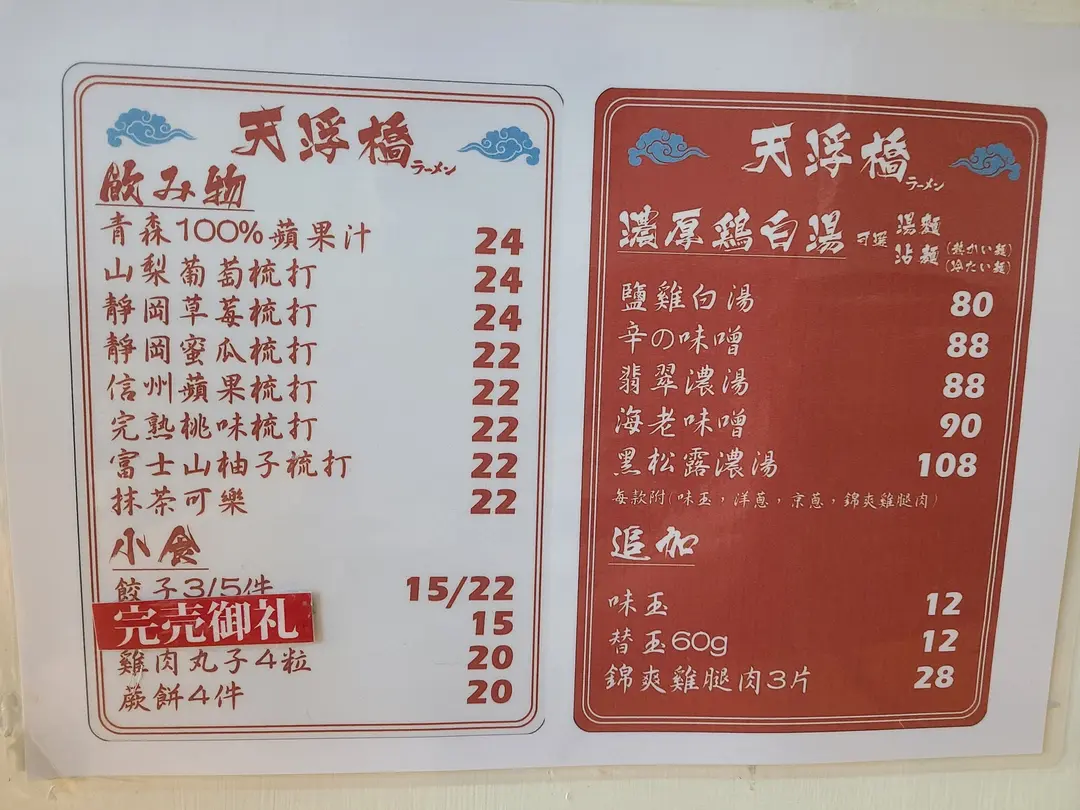 天浮橋
ラーメン
飲み物
青森100%蘋果汁 24
山梨葡萄梳打 24
靜岡草莓梳打 24
靜岡蜜瓜梳打 22
信州蘋果梳打 22
完熟桃味梳打 22
富士山柚子梳打 22
抹茶可樂 22
小食
餃子3/5件 15/22
完売御礼 15
雞肉丸子4粒 20
蕨餅4件 20
天浮橋
ラーメン
濃厚鶏白湯 可選 湯麵
沾麵 (熱かい麵)
(冷たい麵)
鹽雞白湯 80
辛の味噌 88
翡翠濃湯 88
海老味噌 90
黑松露濃湯 108
每款附(味玉，洋蔥，京蔥，錦爽雞腿肉)
追加
味玉 12
替玉60g 12
錦爽雞腿肉3片 28